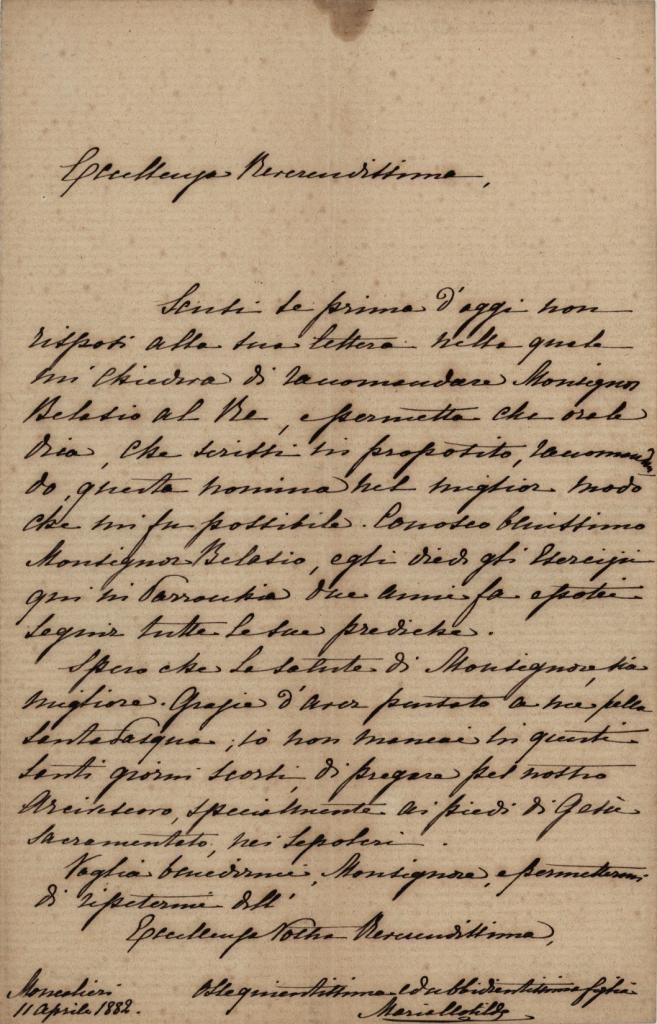 Eccellenza Reverendissima,
Scusi se prima d'oggi non
risposi alla sua lettera nella quale
mi chiedeva di raccomandare Monsignor
Belasio al Re, e permetta che ora le
dica, che scrissi in proposito, raccoman
do, questa nomina nel miglior modo
che mi fu possibile. Conosco benissimo
Monsignor Belasio, egli diede gli Esercizii
qui in Parrocchia due anni fa e potei
seguir tutte le sue prediche.
Spero che la salute di Monsignore sia
migliore. Grazie d'aver pensato a me pella
Santa Pasqua, io non mancai in questi
santi giorni scorsi, di pregare pel nostro
Arcivescovo, specialmente ai piedi di Gesù
Sacramentato, nei sepolcri.
Voglia benedirmi, Monsignore, e permettermi
di ripetermi dell'
Eccellenza Vostra Reverendissima,
Moncalieri Ossequientissima ed ubbidientissima figlia
11 Aprile 1882. Maria Clotilde